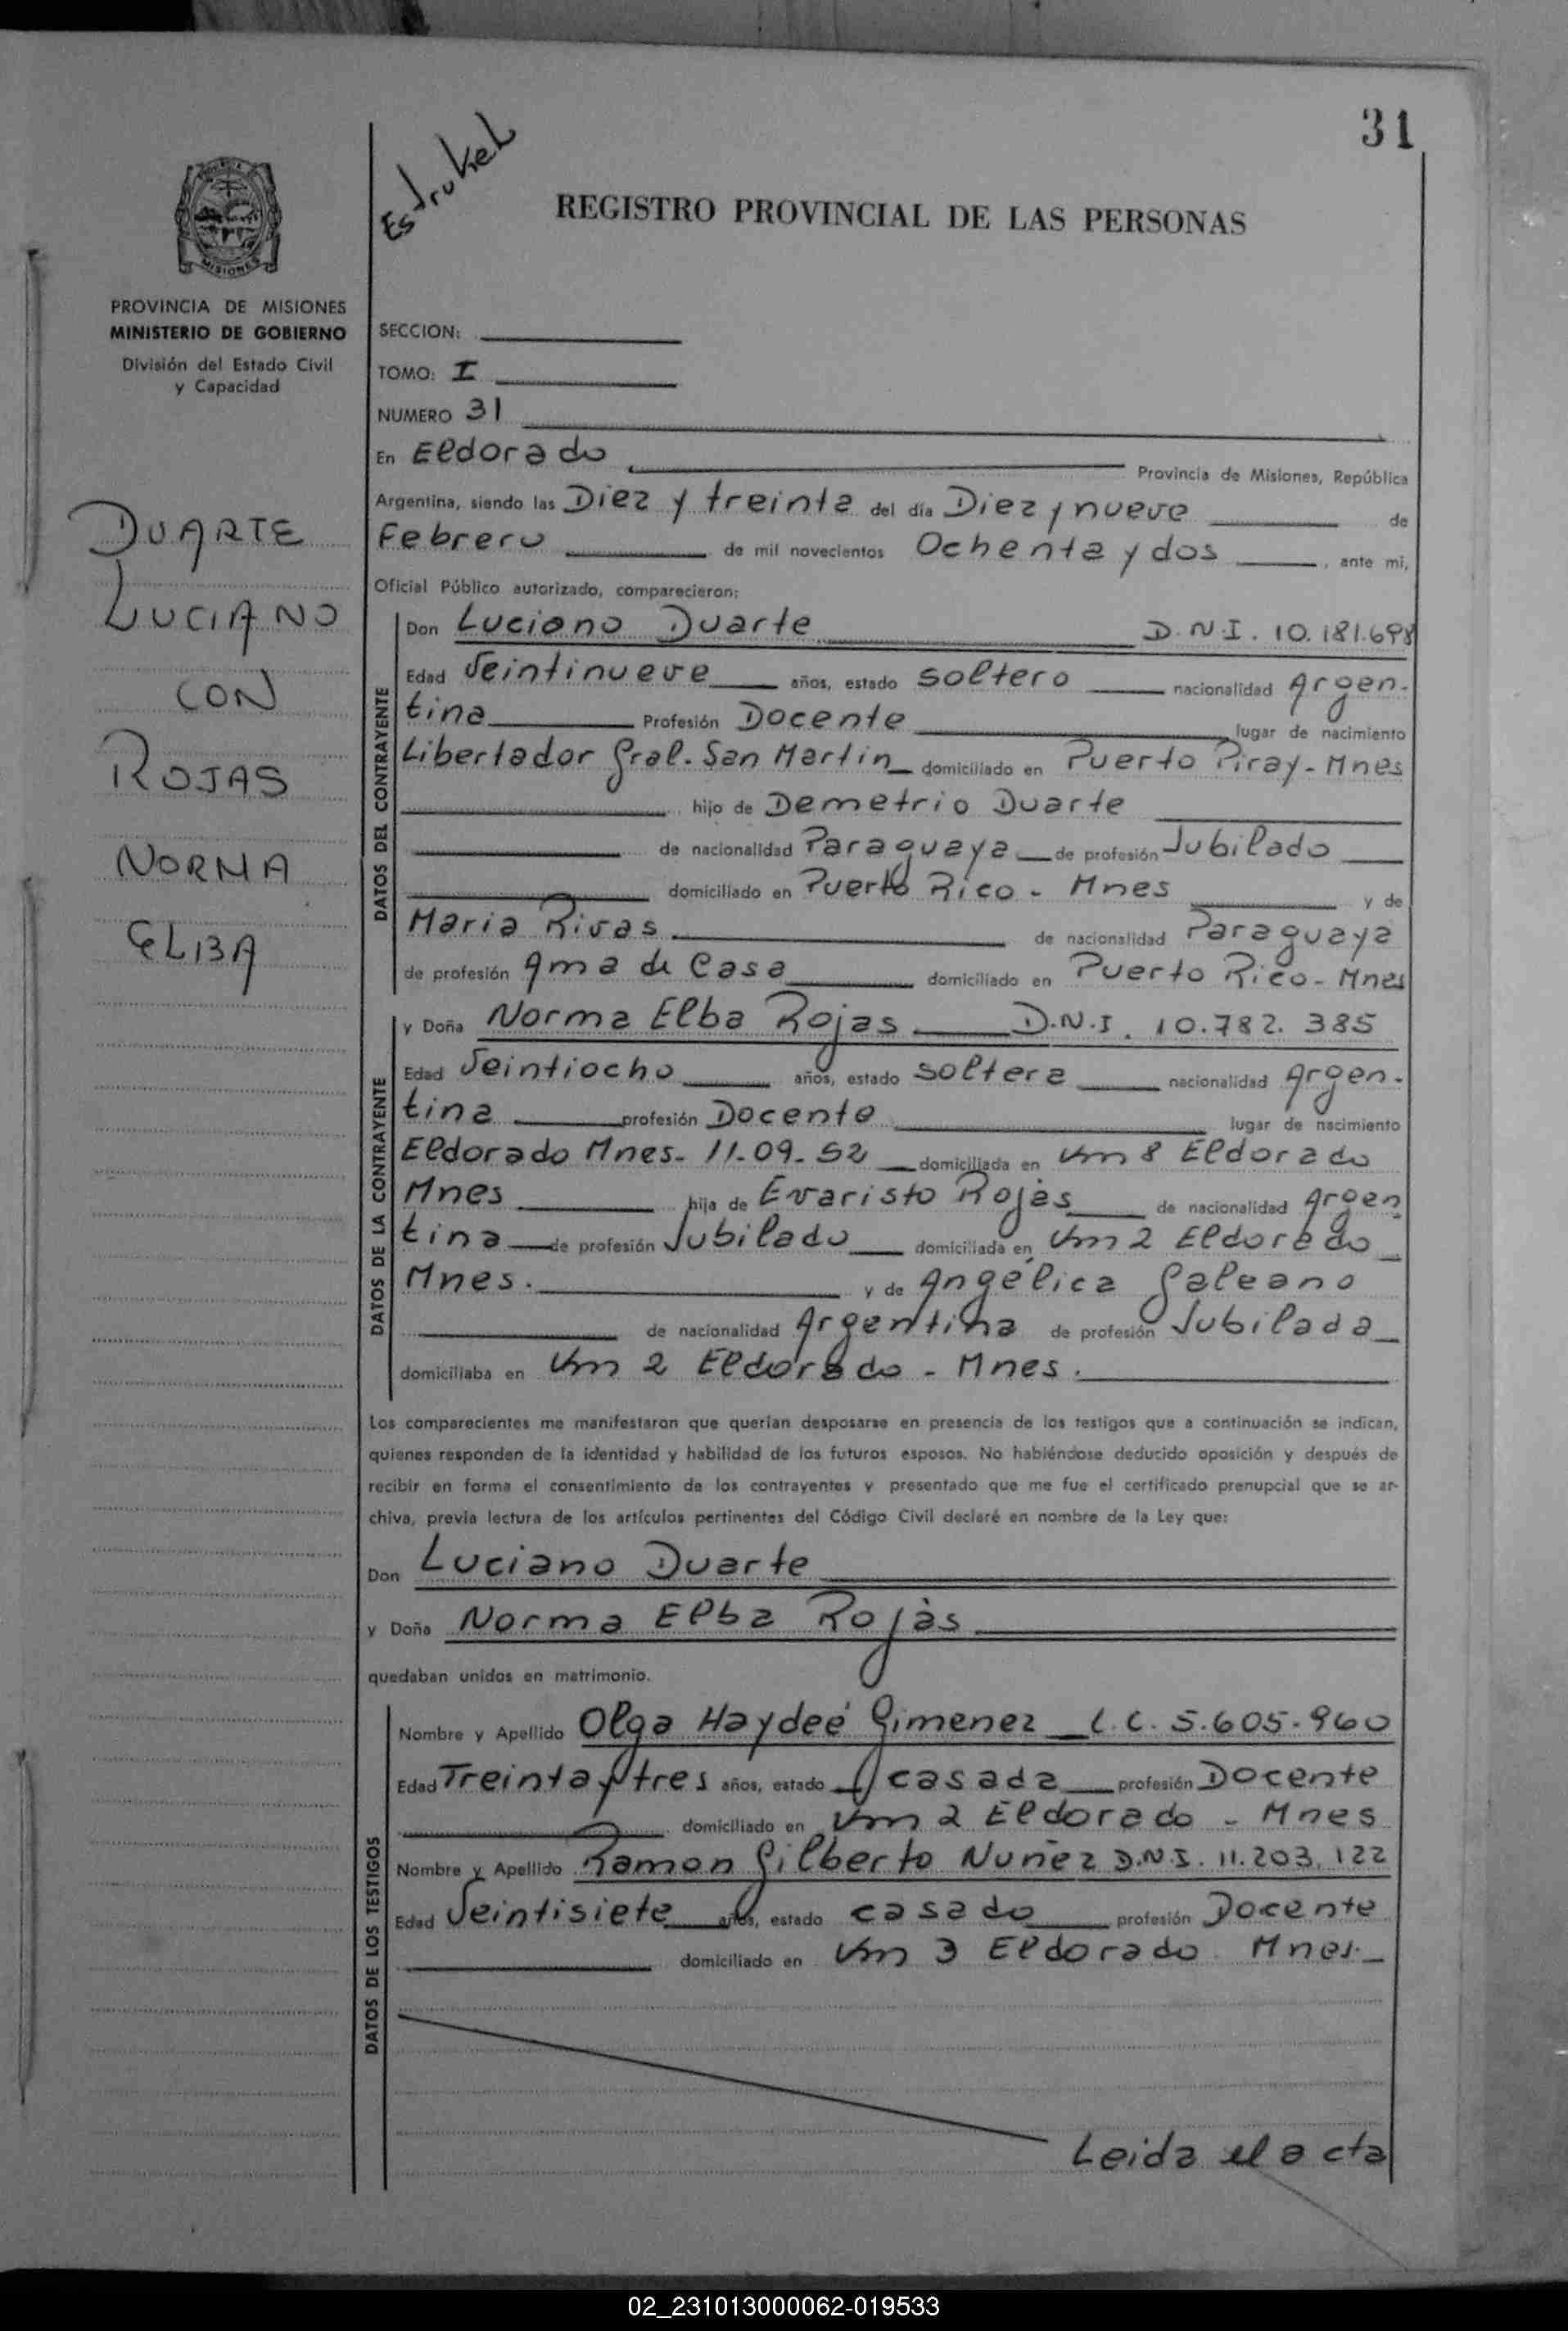 31
Estrukel
MISIONES
REGISTRO PROVINCIAL DE LAS PERSONAS
PROVINCIA DE MISIONES
MINISTERIO DE GOBIERNO
División del Estado Civil
y Capacidad
DUARTE
LUCIANO
CON
ROJAS
NORMA
ELBA
SECCION:
TOMO: I
NUMERO 31
En Eldorado Provincia de Misiones, República
Argentina, siendo las Diez y treinta del día Diez y nueve de
Febrero de mil novecientos Ochenta y dos, ante mi,
Oficial Público autorizado, comparecieron:
DATOS DEL CONTRAYENTE
Don Luciano Duarte D.N.I. 10.181.698
Edad Veintinueve años, estado soltero nacionalidad Argen-
tina Profesión Docente lugar de nacimiento
Libertador Gral. San Martin domiciliado en Puerto Piray - Mnes
hijo de Demetrio Duarte
de nacionalidad Paraguaya de profesión Jubilado
domiciliado en Puerto Rico - Mnes y de
Maria Rivas de nacionalidad Paraguaya
de profesión Ama de Casa domiciliado en Puerto Rico - Mnes
DATOS DE LA CONTRAYENTE
y Doña Norma Elba Rojas D.N.I. 10.782.385
Edad Veintiocho años, estado soltera nacionalidad Argen-
tina profesión Docente lugar de nacimiento
Eldorado Mnes - 11-09-52 domiciliada en Km 8 Eldorado
Mnes hija de Evaristo Rojas de nacionalidad Argen
tina de profesión Jubilado domiciliada en Km 2 Eldorado
Mnes. y de Angélica Galeano
de nacionalidad Argentina de profesión Jubilada
domiciliaba en Km 2 Eldorado - Mnes.
Los comparecientes me manifestaron que querían desposarse en presencia de los testigos que a continuación se indican,
quienes responden de la identidad y habilidad de los futuros esposos. No habiéndose deducido oposición y después de
recibir en forma el consentimiento de los contrayentes y presentado que me fue el certificado prenupcial que se ar-
chiva, previa lectura de los artículos pertinentes del Código Civil declaré en nombre de la Ley que:
Don Luciano Duarte
y Doña Norma Elba Rojas
quedaban unidos en matrimonio.
DATOS DE LOS TESTIGOS
Nombre y Apellido Olga Haydeé Gimenez L.C. 5.605.960
Edad Treinta y tres años, estado casada profesión Docente
domiciliado en Km 2 Eldorado - Mnes
Nombre y Apellido Ramon Gilberto Nuñez D.N.I. 11.203.122
Edad Veintisiete años, estado casado profesión Docente
domiciliado en Km 3 Eldorado Mnes.
Leida el acta
02_231013000062-019533